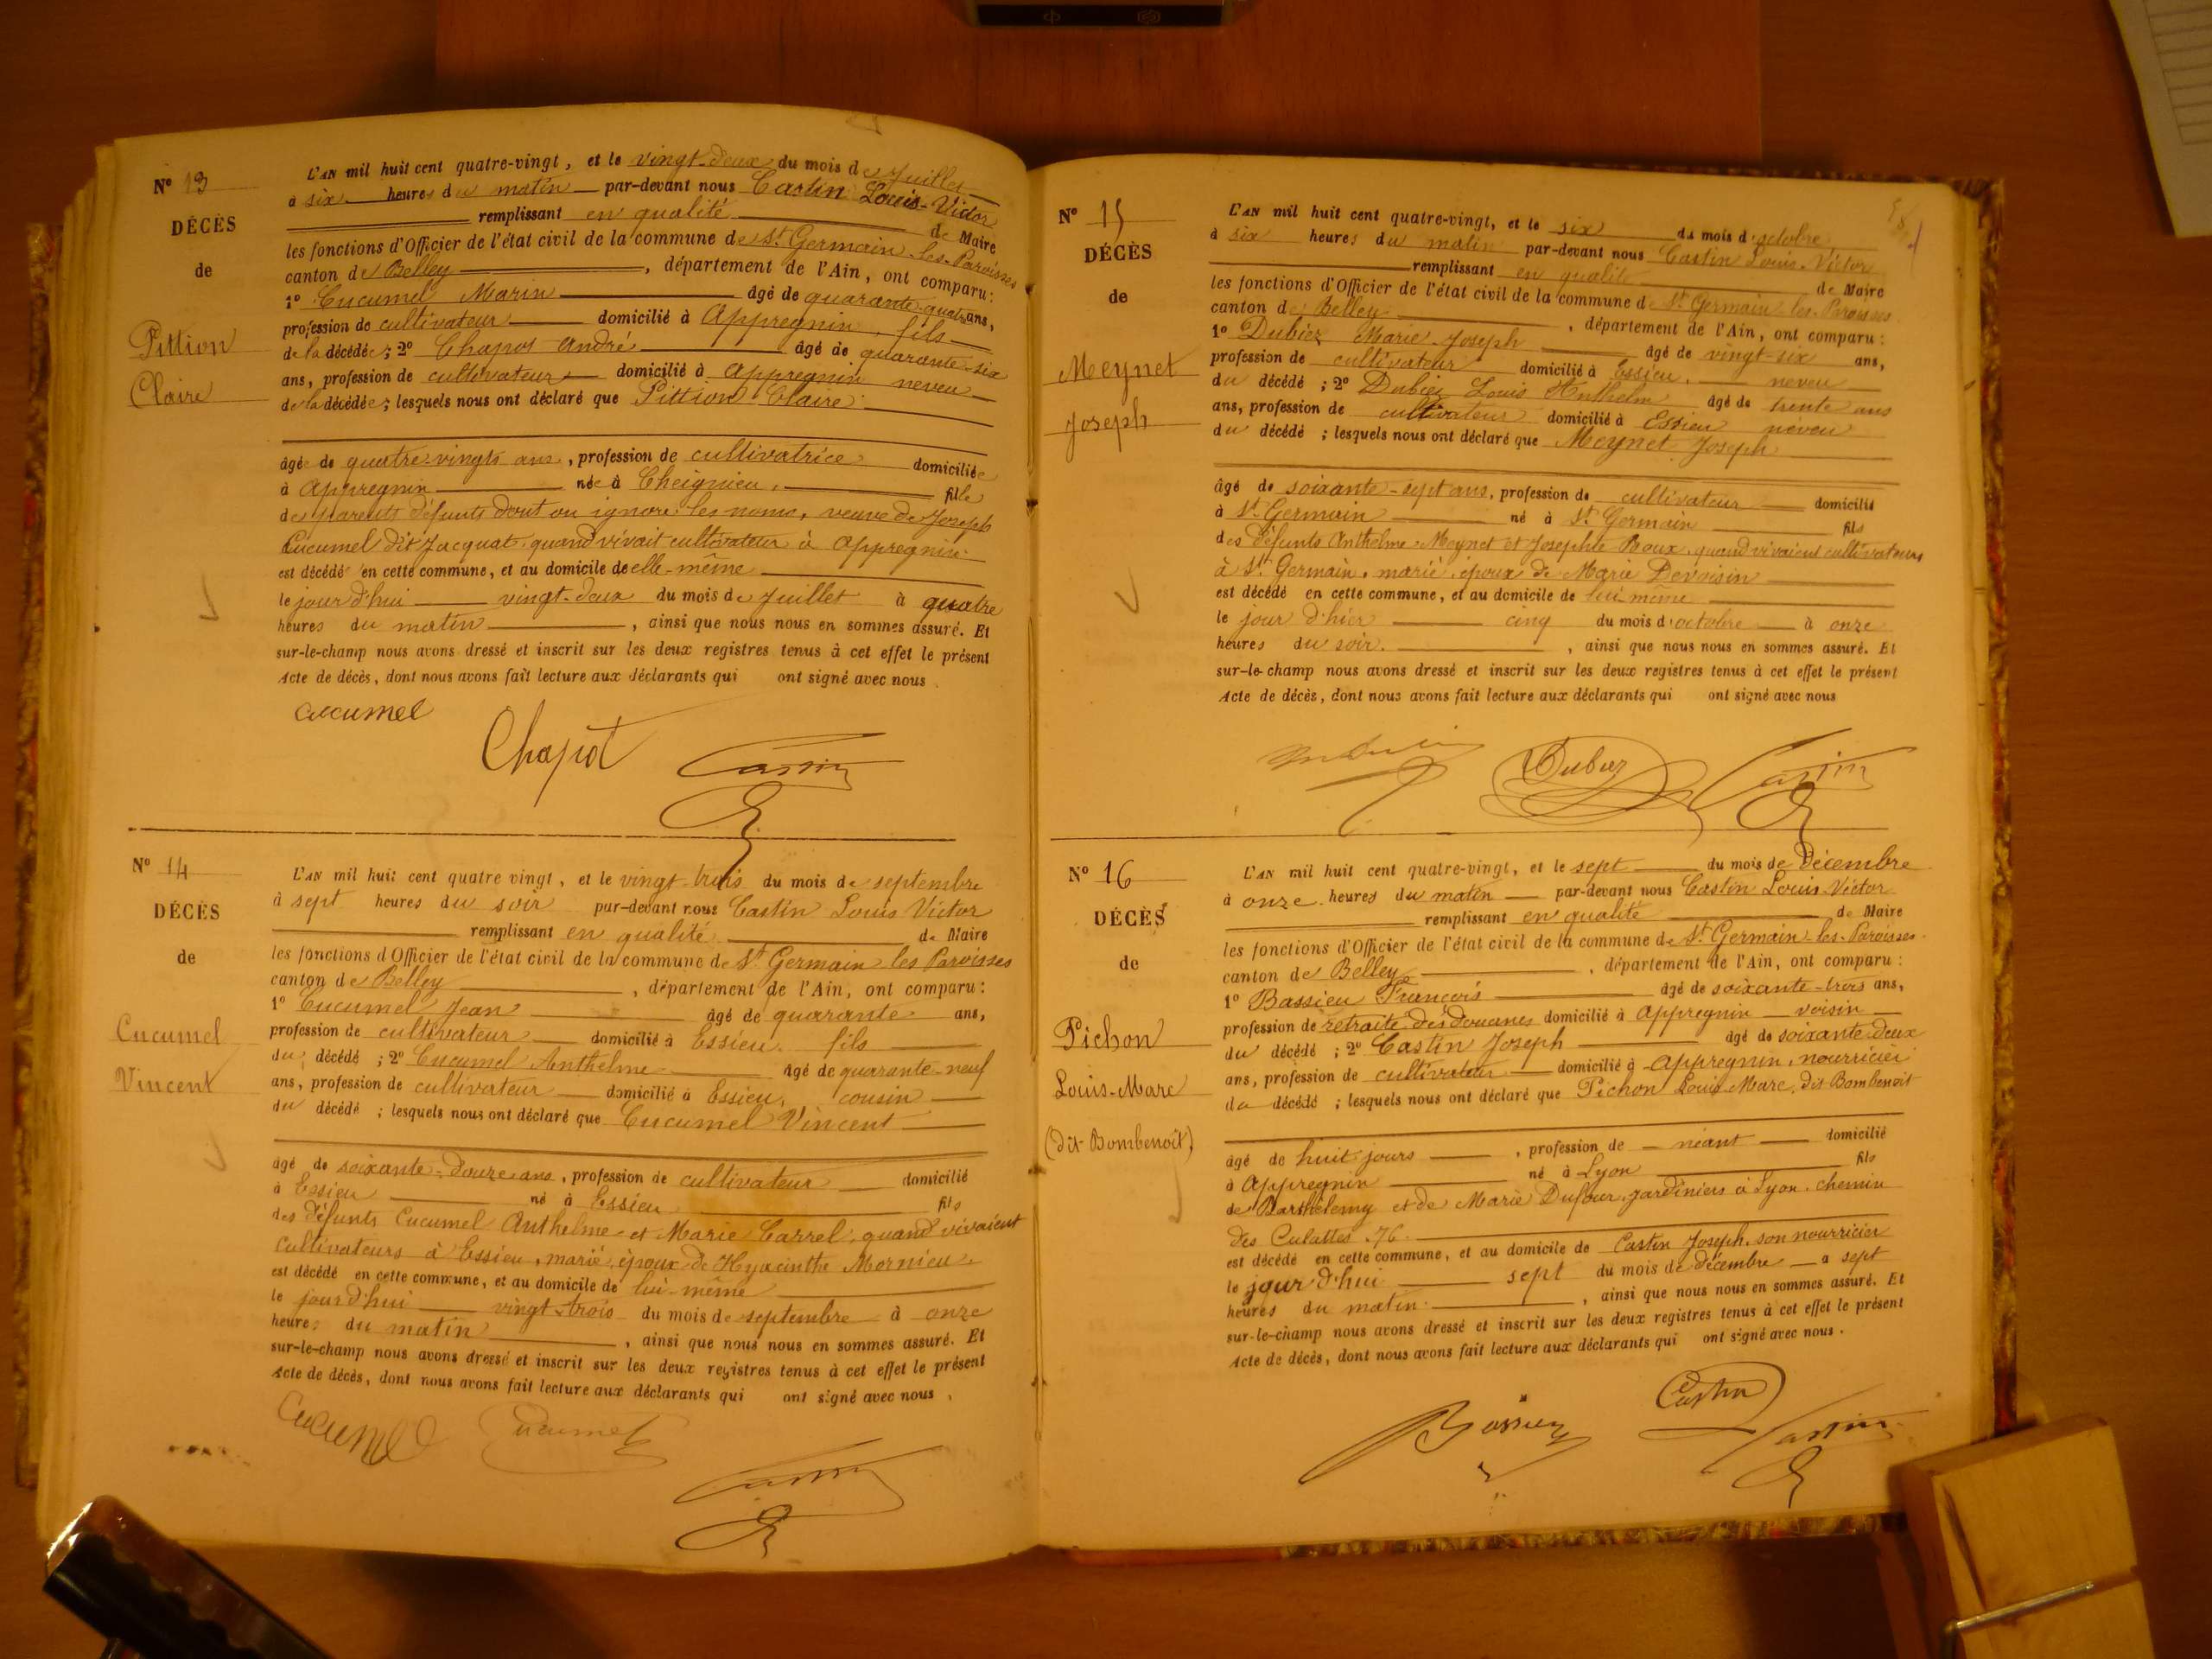 N° 13
DÉCÈS
de
Pittion
Claire
L'AN mil huit cent quatre-vingt, et le vingt-deux du mois de Juillet
à six heures du matin par-devant nous Castin Louis-Victor
remplissant en qualité de Maire
les fonctions d'Officier de l'état civil de la commune de St Germain-les-Paroisses
canton de Belley, département de l'Ain, ont comparu:
1° Cucumel Marin âgé de quarante-quatre ans,
profession de cultivateur domicilié à Appregnin, fils
de la décédée; 2° Chapot André âgé de quarante-six
ans, profession de cultivateur domicilié à Appregnin neveu
de la décédée; lesquels nous ont déclaré que Pittion Claire
âgée de quatre-vingts ans, profession de cultivatrice domiciliée
à Appregnin née à Cheignieu, fille
de parents défunts dont on ignore les noms, veuve de Joseph
Cucumel dit Jacquat, quand vivait cultivateur à Appregnin
est décédé en cette commune, et au domicile de elle-même
le jour d'hui vingt-deux du mois de Juillet à quatre
heures du matin, ainsi que nous nous en sommes assuré. Et
sur-le-champ nous avons dressé et inscrit sur les deux registres tenus à cet effet le présent
Acte de décès, dont nous avons fait lecture aux déclarants qui ont signé avec nous.
Cucumel
Chapot
Castin
N° 14
DÉCÈS
de
Cucumel
Vincent
L'AN mil huit cent quatre vingt, et le vingt-trois du mois de septembre
à sept heures du soir par-devant nous Castin Louis Victor
remplissant en qualité de Maire
les fonctions d'Officier de l'état civil de la commune de St Germain les Paroisses
canton de Belley, département de l'Ain, ont comparu:
1° Cucumel Jean âgé de quarante ans,
profession de cultivateur domicilié à Essieu. fils
du décédé; 2° Cucumel Anthelme âgé de quarante-neuf
ans, profession de cultivateur domicilié à Essieu, cousin
du décédé; lesquels nous ont déclaré que Cucumel Vincent
âgé de soixante-douze ans, profession de cultivateur domicilié
à Essieu né à Essieu fils
des défunts Cucumel Anthelme et Marie Carrel, quand vivaient
cultivateurs à Essieu, marié, époux de Hyacinthe Mornieu,
est décédé en cette commune, et au domicile de lui-même
le jour d'hui vingt-trois du mois de septembre à onze
heures du matin, ainsi que nous nous en sommes assuré. Et
sur-le-champ nous avons dressé et inscrit sur les deux registres tenus à cet effet le présent
Acte de décès, dont nous avons fait lecture aux déclarants qui ont signé avec nous.
Cucumel Cucumel
Castin
N° 15
DÉCÈS
de
Meynet
Joseph
L'AN mil huit cent quatre-vingt, et le six du mois d'octobre
à six heures du matin par-devant nous Castin Louis-Victor
remplissant en qualité de Maire
les fonctions d'Officier de l'état civil de la commune de St Germain-les-Paroisses
canton de Belley, département de l'Ain, ont comparu:
1° Dubiez Marie-Joseph âgé de vingt-six ans,
profession de cultivateur domicilié à Essieu, neveu
du décédé; 2° Dubiez Louis Anthelm âgé de trente ans
ans, profession de cultivateur domicilié à Essieu neveu
du décédé; lesquels nous ont déclaré que Meynet Joseph
âgé de soixante-sept ans, profession de cultivateur domicilié
à St Germain né à St Germain fils
des défunts Anthelme Meynet et Josephte Roux, quand vivaient cultivateurs
à St Germain, marié, époux de Marie Devoisin
est décédé en cette commune, et au domicile de lui-même
le jour d'hier cinq du mois d'octobre à onze
heures du soir, ainsi que nous nous en sommes assuré. Et
sur-le-champ nous avons dressé et inscrit sur les deux registres tenus à cet effet le présent
Acte de décès, dont nous avons fait lecture aux déclarants qui ont signé avec nous
Dubiez Castin
N° 16
DÉCÈS
de
Pichon
Louis-Marc
(dit Bombenoit)
L'AN mil huit cent quatre-vingt, et le sept du mois de Décembre
à onze heures du matin par-devant nous Castin Louis-Victor
remplissant en qualité de Maire
les fonctions d'Officier de l'état civil de la commune de St Germain-les-Paroisses
canton de Belley, département de l'Ain, ont comparu:
1° Bassieu François âgé de soixante-trois ans,
profession de retraite des douanes domicilié à Appregnin voisin
du décédé; 2° Castin Joseph âgé de soixante-deux
ans, profession de cultivateur domicilié à Appregnin, nourricier
du décédé; lesquels nous ont déclaré que Pichon Louis-Marc, dit Bombenoit
âgé de huit jours, profession de néant domicilié
à Appregnin né à Lyon fils
de Barthélemy et de Marie Dufour, jardiniers à Lyon, chemin
des Culattes, 76.
est décédé en cette commune, et au domicile de Castin Joseph, son nourricier
le jour d'hui sept du mois de décembre à sept
heures du matin, ainsi que nous nous en sommes assuré. Et
sur-le-champ nous avons dressé et inscrit sur les deux registres tenus à cet effet le présent
Acte de décès, dont nous avons fait lecture aux déclarants qui ont signé avec nous.
Bassieu Castin Castin